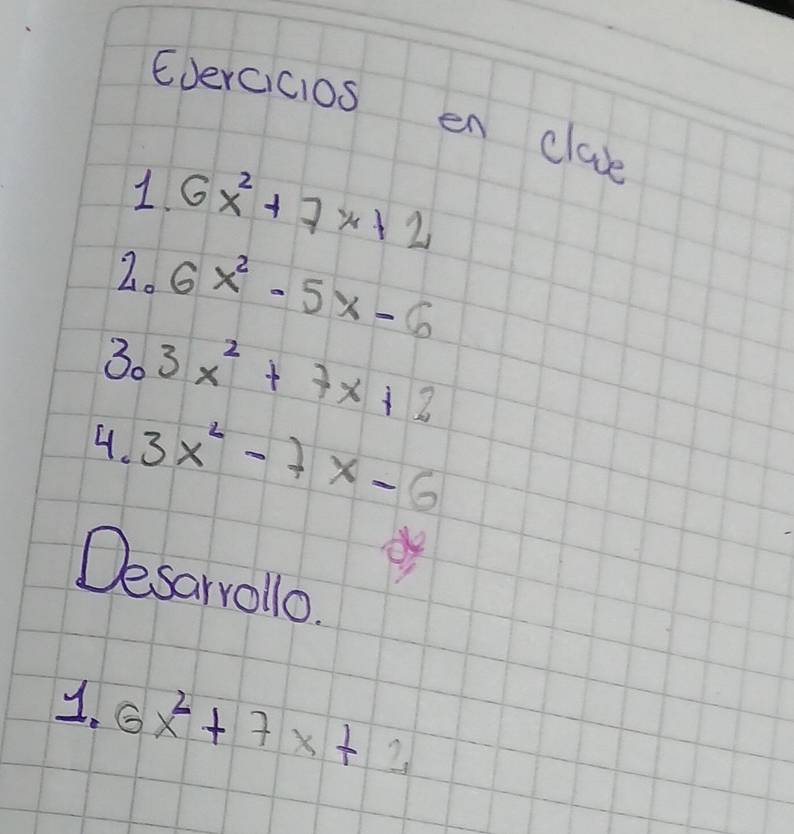 Ejercicios en clave
1. 6x² + 7x + 2
2. 6x² - 5x - 6
3. 3x² + 7x + 2
4. 3x² - 7x - 6
Desarrollo.
1. 6x² + 7x + 2